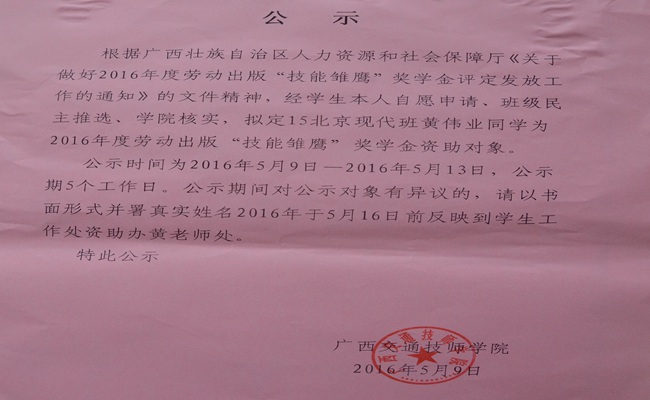 公 示
根据广西壮族自治区人力资源和社会保障厅《关于
做好2016年度劳动出版“技能雏鹰”奖学金评定发放工
作的通知》的文件精神，经学生本人自愿申请、班级民
主推选、学院核实，拟定15北京现代班黄伟业同学为
2016年度劳动出版“技能雏鹰”奖学金资助对象。
公示时间为2016年5月9日—2016年5月13日，公示
期5个工作日。公示期间对公示对象有异议的，请以书
面形式并署真实姓名2016年于5月16日前反映到学生工
作处资助办黄老师处。
特此公示
广西交通技师学院
2016年5月9日